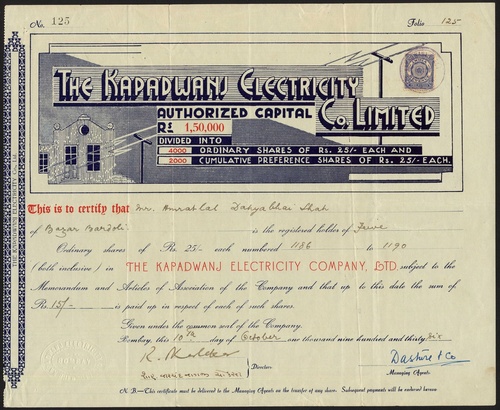 No. 125 Folio 125
THE KAPADWANJ ELECTRICITY
CO. LIMITED
AUTHORIZED CAPITAL
Rs. 1,50,000
DIVIDED INTO
4000 ORDINARY SHARES OF Rs. 25/- EACH AND
2000 CUMULATIVE PREFERENCE SHARES OF Rs. 25/- EACH.
This is to certify that Mr. Amratlal Dahyabhai Shah
of Bazar Bardoli is the registered holder of Five
Ordinary shares of Rs. 25/- each numbered 1186 to 1190
(both inclusive) in THE KAPADWANJ ELECTRICITY COMPANY, LTD. subject to the
Memorandum and Articles of Association of the Company and that up to this date the sum of
Rs. 15/- is paid up in respect of each of such shares.
Given under the common seal of the Company.
Bombay, this 10th day of October one thousand nine hundred and thirty six
Directors
Dasture & Co
Managing Agents
N. B.—This certificate must be delivered to the Managing Agents on the transfer of any share. Subsequent payments will be endorsed hereon.